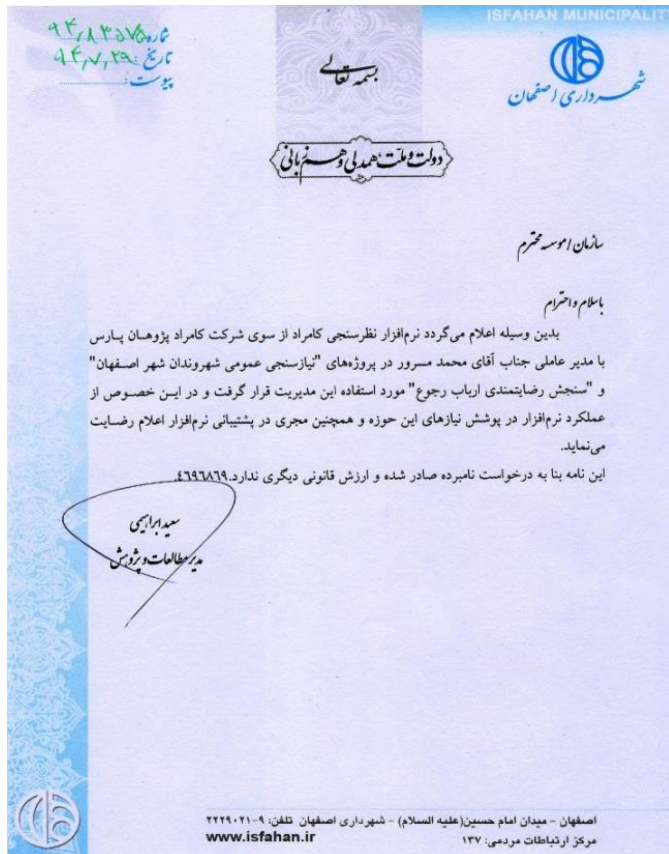 ISFAHAN MUNICIPALITY
شهرداری اصفهان
بسمه تعالی
شماره:
تاریخ: ۹۴٫۷٫۲۹
پیوست:
دولت و ملت، همدلی و همزبانی
سازمان / موسسه محترم
باسلام و احترام
بدین وسیله اعلام می‌گردد نرم‌افزار نظرسنجی کامراد از سوی شرکت کامراد پژوهان پارس
با مدیر عاملی جناب آقای محمد مسرور در پروژه‌های "نیازسنجی عمومی شهروندان شهر اصفهان"
و "سنجش رضایتمندی ارباب رجوع" مورد استفاده این مدیریت قرار گرفت و در این خصوص از
عملکرد نرم‌افزار در پوشش نیازهای این حوزه و همچنین مجری در پشتیبانی نرم‌افزار اعلام رضایت
می‌نماید.
این نامه بنا به درخواست نامبرده صادر شده و ارزش قانونی دیگری ندارد.٤٦٩٦٨٦٩
سعید ابراهیمی
مدیر مطالعات و پژوهش
اصفهان - میدان امام حسین(علیه السلام) - شهرداری اصفهان تلفن: ۹-۲۲۲۹۰۲۱
www.isfahan.ir
مرکز ارتباطات مردمی: ۱۳۷